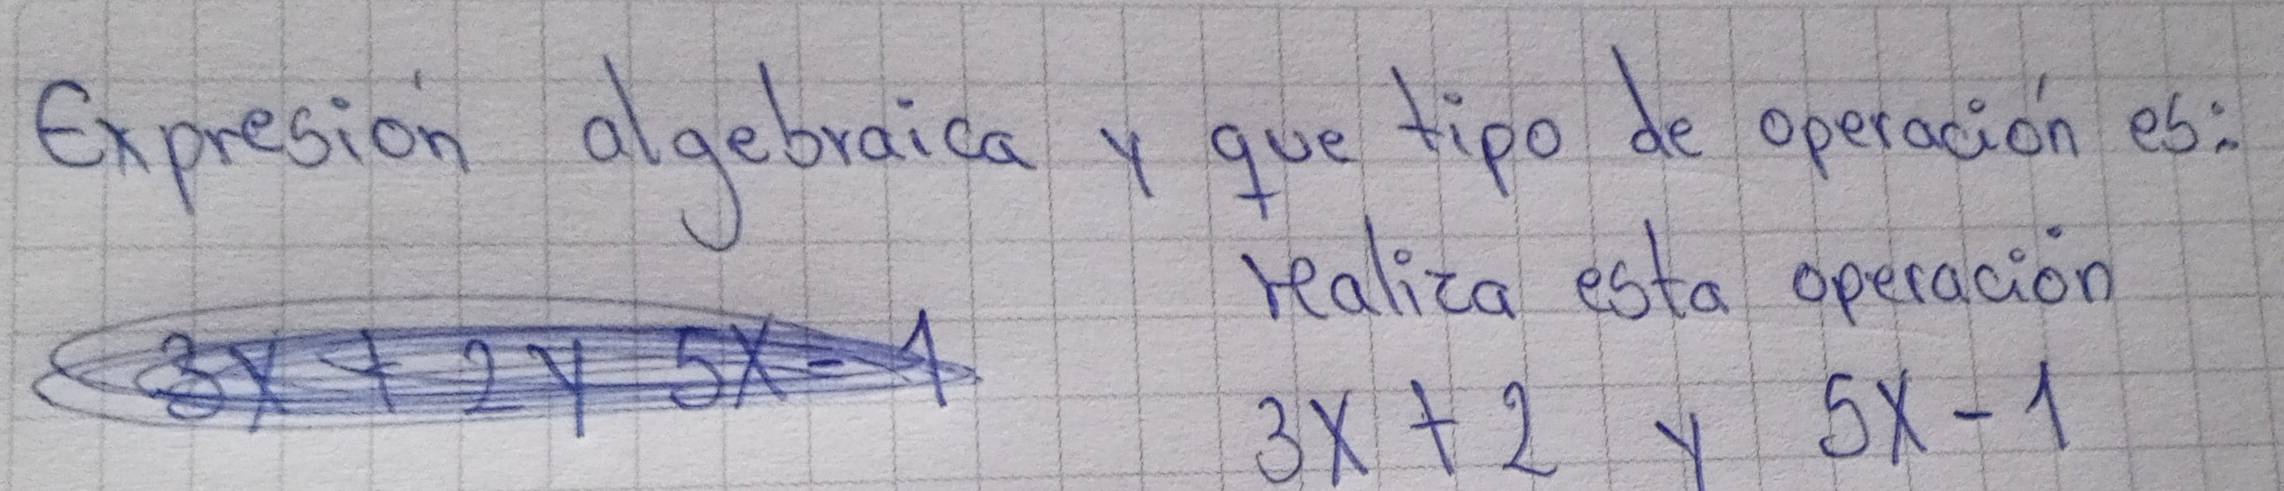 Expresión algebraica y que tipo de operación es:
realiza esta operación
3x + 2 y 5x - 1
3x + 2 y 5x - 1